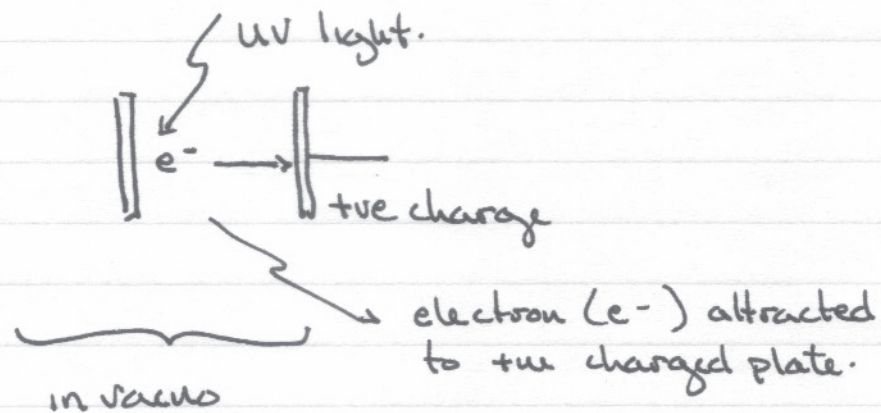 uv light.
e-
+ve charge
electron (e-) attracted
to +ve charged plate.
in vacuo